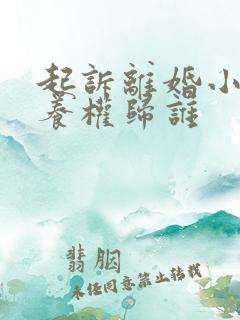 起訴離婚小
養權歸誰
翡胭
未任同意禁止轉載